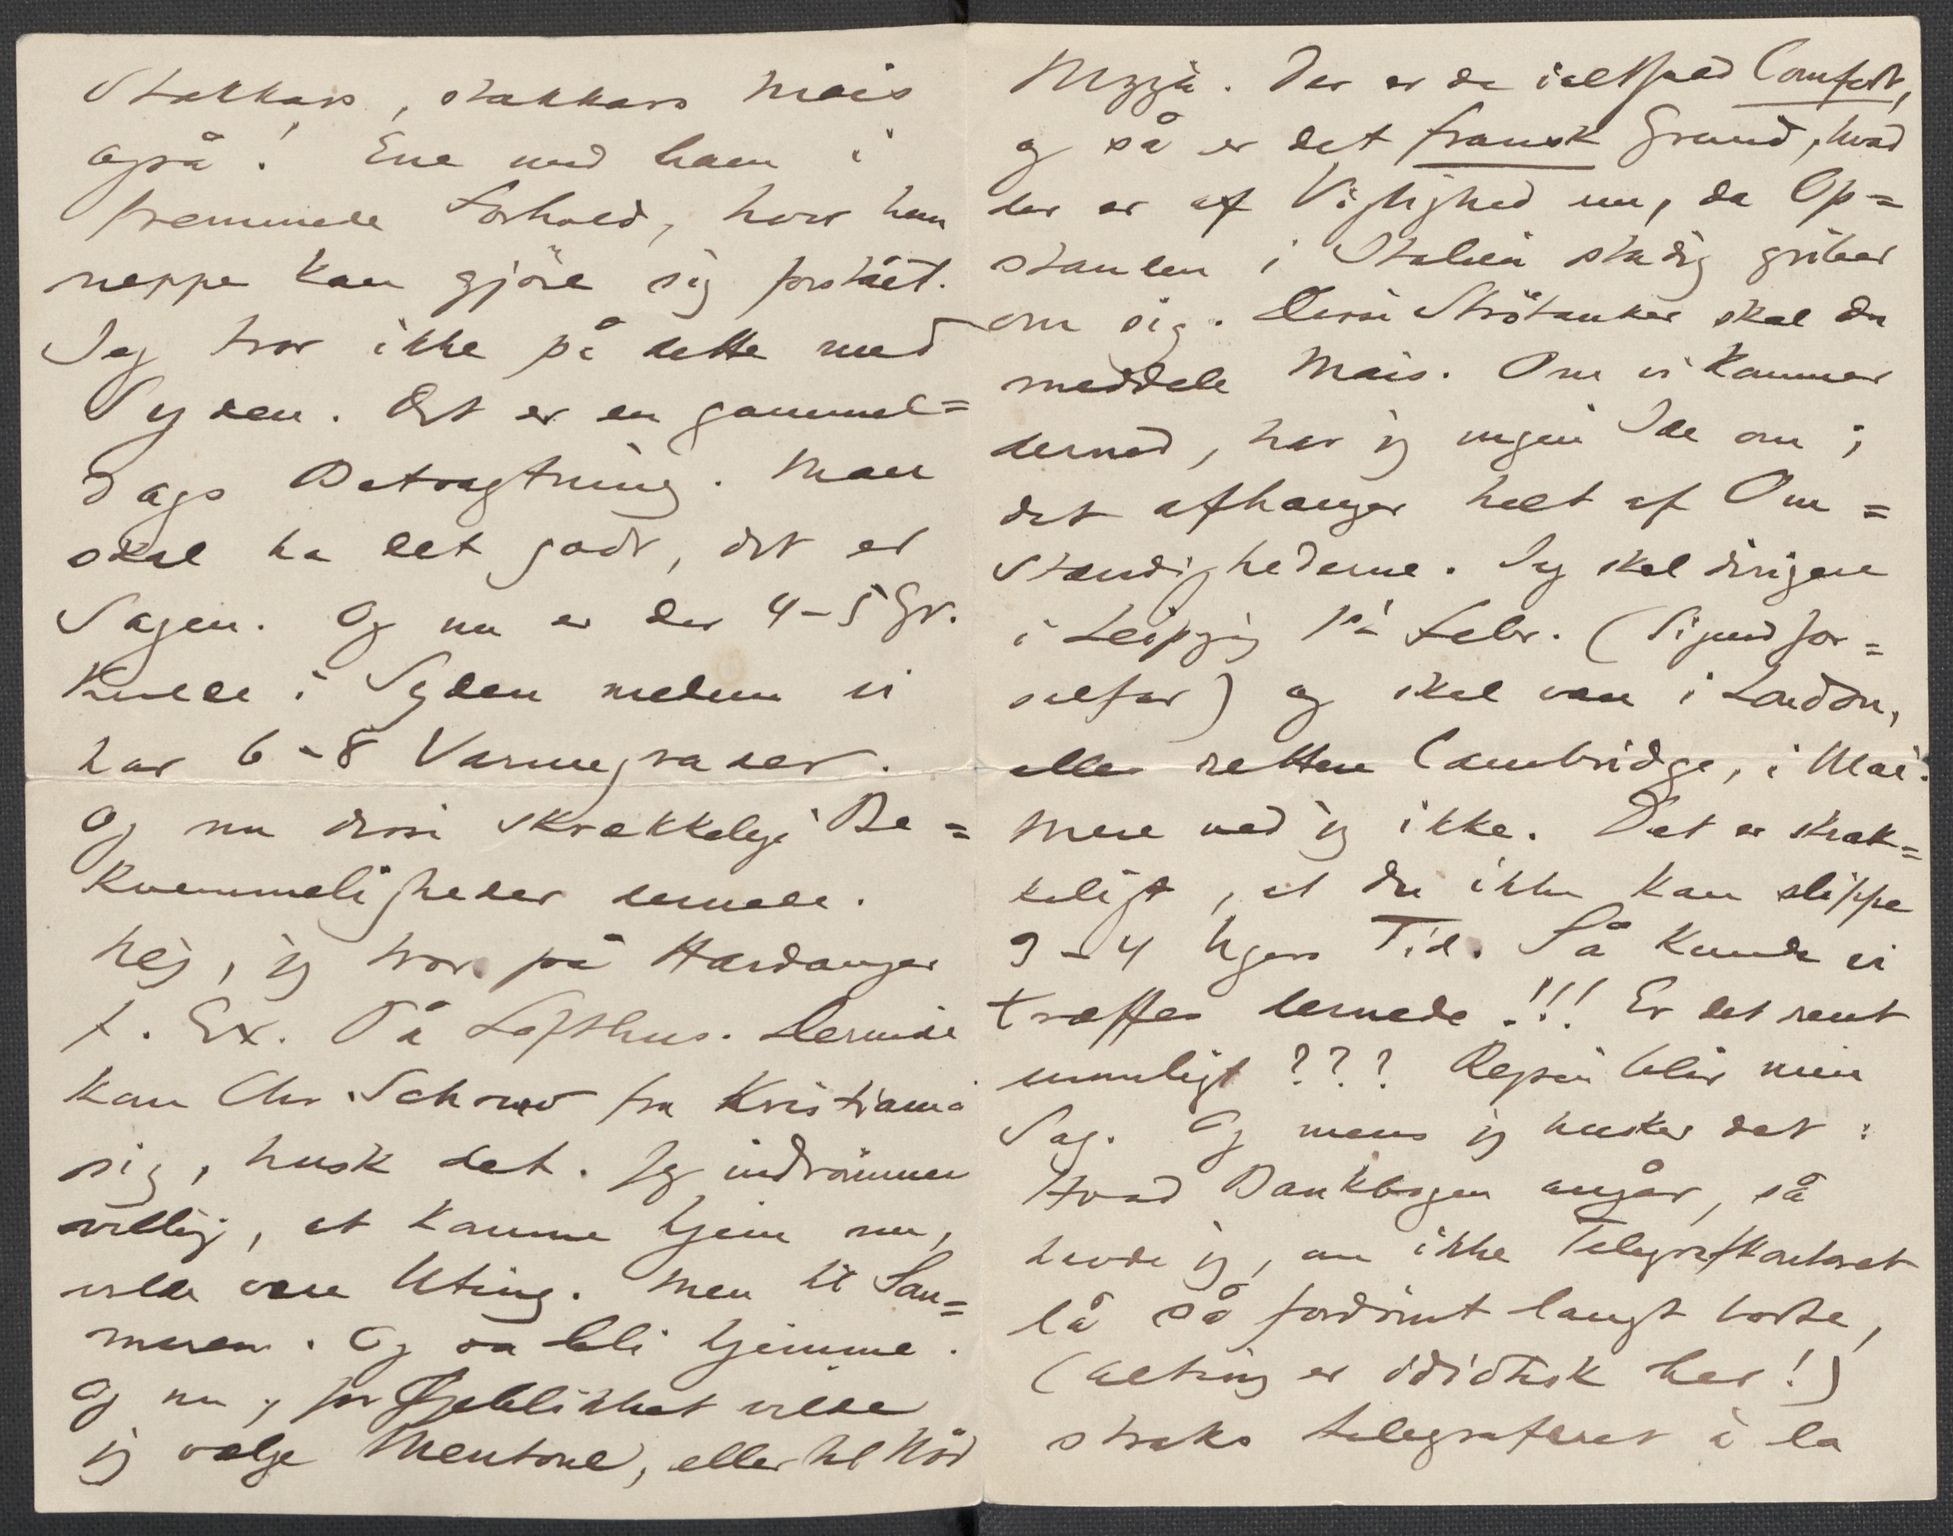 Stakkars, stakkars Mais
også! Ene med ham i
fremmede Forhold, hvor han
neppe kan gjöre sig forstået.
Jeg tror ikke på dette med
Syden. Det er en gammel=
dags Betragtning. Man
skal ha det godt, det er
Sagen. Og nu er der 4-5 Gr.
Kulde i Syden medens vi
har 6-8 Varmegrader.
Og nu disse skrækkelige Be=
kvemmeligheder dernede.
Nej, jeg tror på Hardanger
f. Ex. På Lofthus. Derinde
kan Chr. Schouw fra Kristiania
sig, husk det. Jeg indrömmer
villig, at komme hjem nu,
vilde være Uting. Men til Som=
meren. Og så bli hjemme.
Og nu, for Øjeblikket vilde
jeg vælge Mentone, eller til Nöd
Nizza. Der er da ialtfald Comfort,
og så er det fransk Grund, hvad
der er af Vigtighed nu, da Op=
standen i Italien stadig griber
om sig. Disse Strötanker skal du
meddele Mais. Om vi kommer
derned, har jeg ingen Ide om;
det afhænger helt af Om=
stændighederne. Jeg skal dirigere
i Leipzig 1ste Febr. (Sigurd Jor=
salfar) og skal være i London,
eller rettere Cambridge, i Mai.
Mere ved jeg ikke. Det er skræk=
keligt, at du ikke kan slippe
3-4 Ugers Tid. Så kunde vi
træffes dernede!!! Er det rent
umuligt??? Rejsen blir min
Sag. Og mens jeg husker det:
Hvad Bankbogen angår, så
havde jeg, om ikke Telegrafkontoret
lå så fordömt langt borte,
(alting er idiotisk her!)
straks telegraferet i la